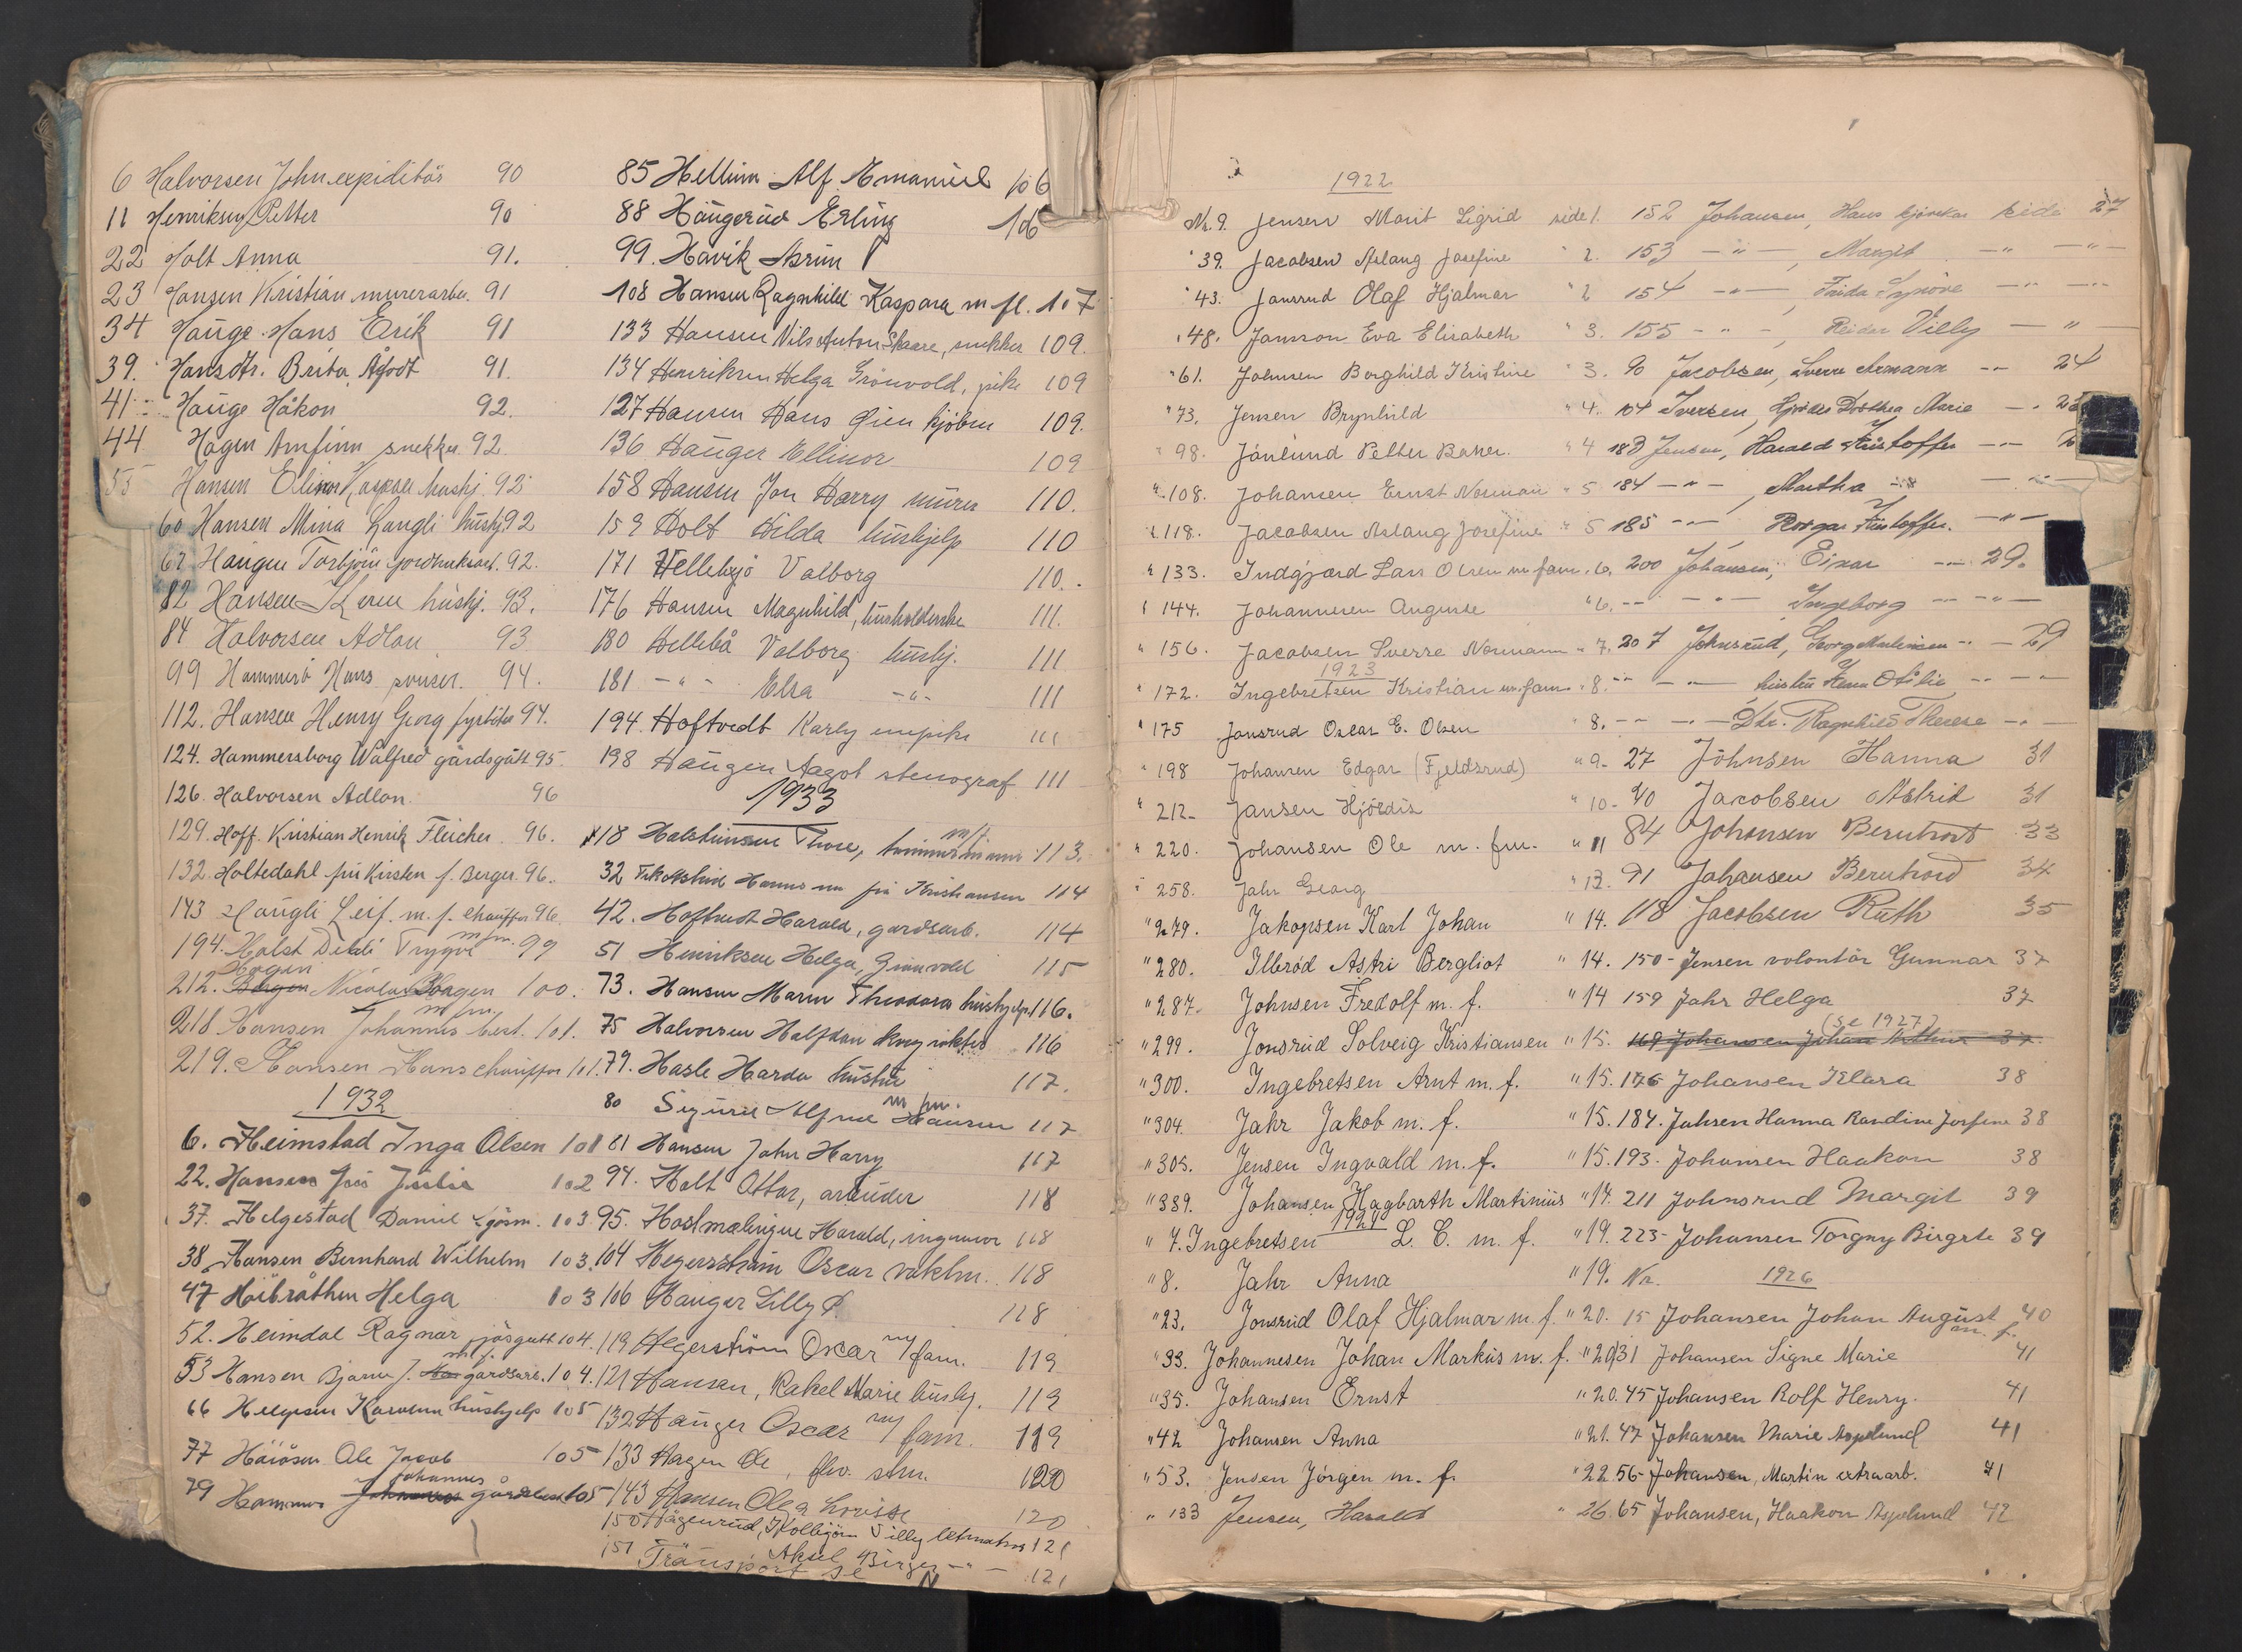 6 Halvorsen John expiditör 90
11 Henriksen Petter 90
22 Holt Anna 91.
23 Hansen Kristian murerarbei. 91
34 Hauge Hans Erik 91
39. Hansdtr. Brita Ågodt 91.
41 Hauge Håkon 92.
44 Hagen Arnfinn snekker 92.
55 Hansen Elinor Kaspara hushj. 92
60 Hansen Mina Langli hushj. 92
62 Haugen Torbjörn jordbruksarb. 92.
82 Hansen Keren hushj. 93.
84 Halvorsen Adlon 93
99 Hammerö Hans 94.
112. Hansen Henry Georg fyrböter 94.
124. Hammersborg Walfred gårdsgutt 95.
126. Halvorsen Adlon. 96
129. Hoff. Kristian Henrik Fleicher. 96.
132. Holtedahl fru Kirsten f. Berger. 96.
143 Haugli Leif. m. f. chauffør 96.
194. Holst Didi Trygve m. fm. 99
Hagen
212. Nicolai Haagen 100.
218 Hansen Johannes m/fm. best. 101.
219. Hansen Hans chauffør 101.
1932
6. Heimstad Inga Olsen 101
22. Hansen frü Julie 102
37. Helgestad Daniel 103
38. Hansen Bernhard Wilhelm 103.
47 Höibråthen Helga 103
52. Heimdal Ragnar gutt 104.
53 Hansen Bjarne J. m f. gårdsarb. 104.
66 Helgesen Karoline hushjelp 105
77 Höiåsen Ole Jacob 105
79 Hammer Johannes 105
85 Hellum Alf Emanuel 106
88 Haugerud Erling 106
99. Hövik Asrun
108 Hansen Ragnhild Kaspara m fl. 107
133 Hansen Nils Anton Skaare, snekker 109.
134 Henriksen Helga Grönvold, pike 109
127 Hansen Hans Öien kjöbm 109.
136 Hauger Ellinor 109
158 Hansen Jon Harry murer 110.
159 Holt Hilda hushjelp 110
171 Hellebyö Valborg 110.
176 Hansen Magnhild, husholderske 111.
180 Hellebö Valborg hushj. 111
181 - " - Elsa - " - 111
194. Hoftvedt Karly ungpike 111
198 Haugen Aagot stenograf 111
1933
18 Halsteinsen Thore, m/f. tömmermann 113.
32 Frk Astrid Hanssen frü Kristiansen 114
42. Hoftvedt Harald, gardsarb. 114
51 Henriksen Helga, Grönvold 115
73. Hansen Maren Theodora hushjelp. 116.
75 Halvorsen Halfdan 116
79. Hasle Harda hustru 117.
80 Sigurd Alfred Hansen m fm. 117
81 Hansen John Harry 117
94. Holt Ottar, arbeider 118
95. Hostmælingen Harald, ingeniør 118
104 Hegerström Oscar vaktm. 118
106 Hauger Lilly 118
119 Hegerström Oscar m/fam. 119
121 Hansen, Rakel Marie hushj. 119
132 Hauger Oscar m/fam. 119
133 Hagen Ole, 120
143 Hansen Olga Lovise 120
150 Hägenrud, Kolbjörn Villy 121
151 Aksel Birger - " - 121
Transport se N
1922
Nr. 9. Jensen Marit Sigrid side 1.
" 39. Jacobsen Aslaug Josefine " 2.
" 43. Jonsrud Olaf Hjalmar " 2
" 48. Jansson Eva Elisabeth " 3.
" 61. Johnsen Borghild Kristine " 3.
" 73. Jensen Brynhild " 4.
" 98. Jönlund Petter Baker. " 4
" 108. Johansen Ernst Norman " 5
" 118. Jacobsen Aslaug Josefine " 5
" 133. Indgjærd Lars Olsen m fam. " 6.
" 144. Johannesen Auguste " 6.
" 156. Jacobsen Sverre Normann " 7.
1923
" 172. Ingebretsen Kristian m. fam. " 8.
" 175 Jonsrud Oscar E. Olsen " 8.
" 198 Johansen Edgar (Fjeldsrud) " 9.
" 212. Jansen Hjördis " 10.
" 220. Johansen Ole m. fm. " 11
" 258. Jahr Georg " 13.
" 279. Jakopsen Karl Johan " 14.
" 280. Ilbrød Astri Bergliot " 14.
" 287. Johnsen Fredolf m. f. " 14
" 299. Jonsrud Solveig Kristiansen " 15.
" 300. Ingebretsen Arnt m. f. " 15.
" 304. Jahr Jakob m. f. " 15.
" 305. Jensen Ingvald m. f. " 15.
" 339. Johansen Hagbarth Martinius " 17.
1924
" 7. Ingebretsen L. C. m. f. " 19.
" 8. Jahr Anna " 19.
" 23. Jonsrud Olaf Hjalmar m. f. " 20.
" 33. Johannesen Johan Markus m. f. " 20
" 35. Johansen Ernst " 20.
" 42 Johansen Anna " 21.
" 53. Jensen Jörgen m. f. " 22
" 133 Jensen, Harald " 26.
152 Johansen, Hans side 27
153 - " - , Margit - " - - " -
154 - " - , Frida Synöve - " - - " -
155 - " - , Reidar Villy - " -
90 Jacobsen, Sverre Armann - " - 24
104 Iversen, Hjördis Dorthea Marie - "
183 Jensen, Harald Kristoffer - " -
184 - " - , Martha - " -
185 - " - Roégar Kristoffer. - " -
200 Johansen, Einar - " - 29.
- " - - " - Ingeborg - " - - " -
207 Johnsrud, Georg Martinsen - " - 29
- " - - " - hustru Otilie - " - - " -
- " - - " - Dtr. Ragnhild Therese - " -
27 Johnsen Hanna 31
40 Jacobsen Astrid 31
84 Johansen Berntrod 33
91 Johansen Berntrod 34
118 Jacobsen Ruth 35
150 - Jensen volontör Gunnar 37
159 Jahr Helga 37
(se 1927)
169 Johansen Johan Arthur 37
176 Johansen Klara 38
184. Jahren Hanna Randine Josefine 38
193. Johansen Haakon 38
211 Johnsrud Margit 39
223 - Johansen Torgny Birgete 39
Nr. 1926
15 Johansen Johan August m. f. 40
31 Johansen Signe Marie 41
45 Johansen Rolf Henry. 41
47 Johansen Marie Aspelund 41
56 - Johansen, Martin extraarb. 41
65 Johansen, Haakon Aspelund 42